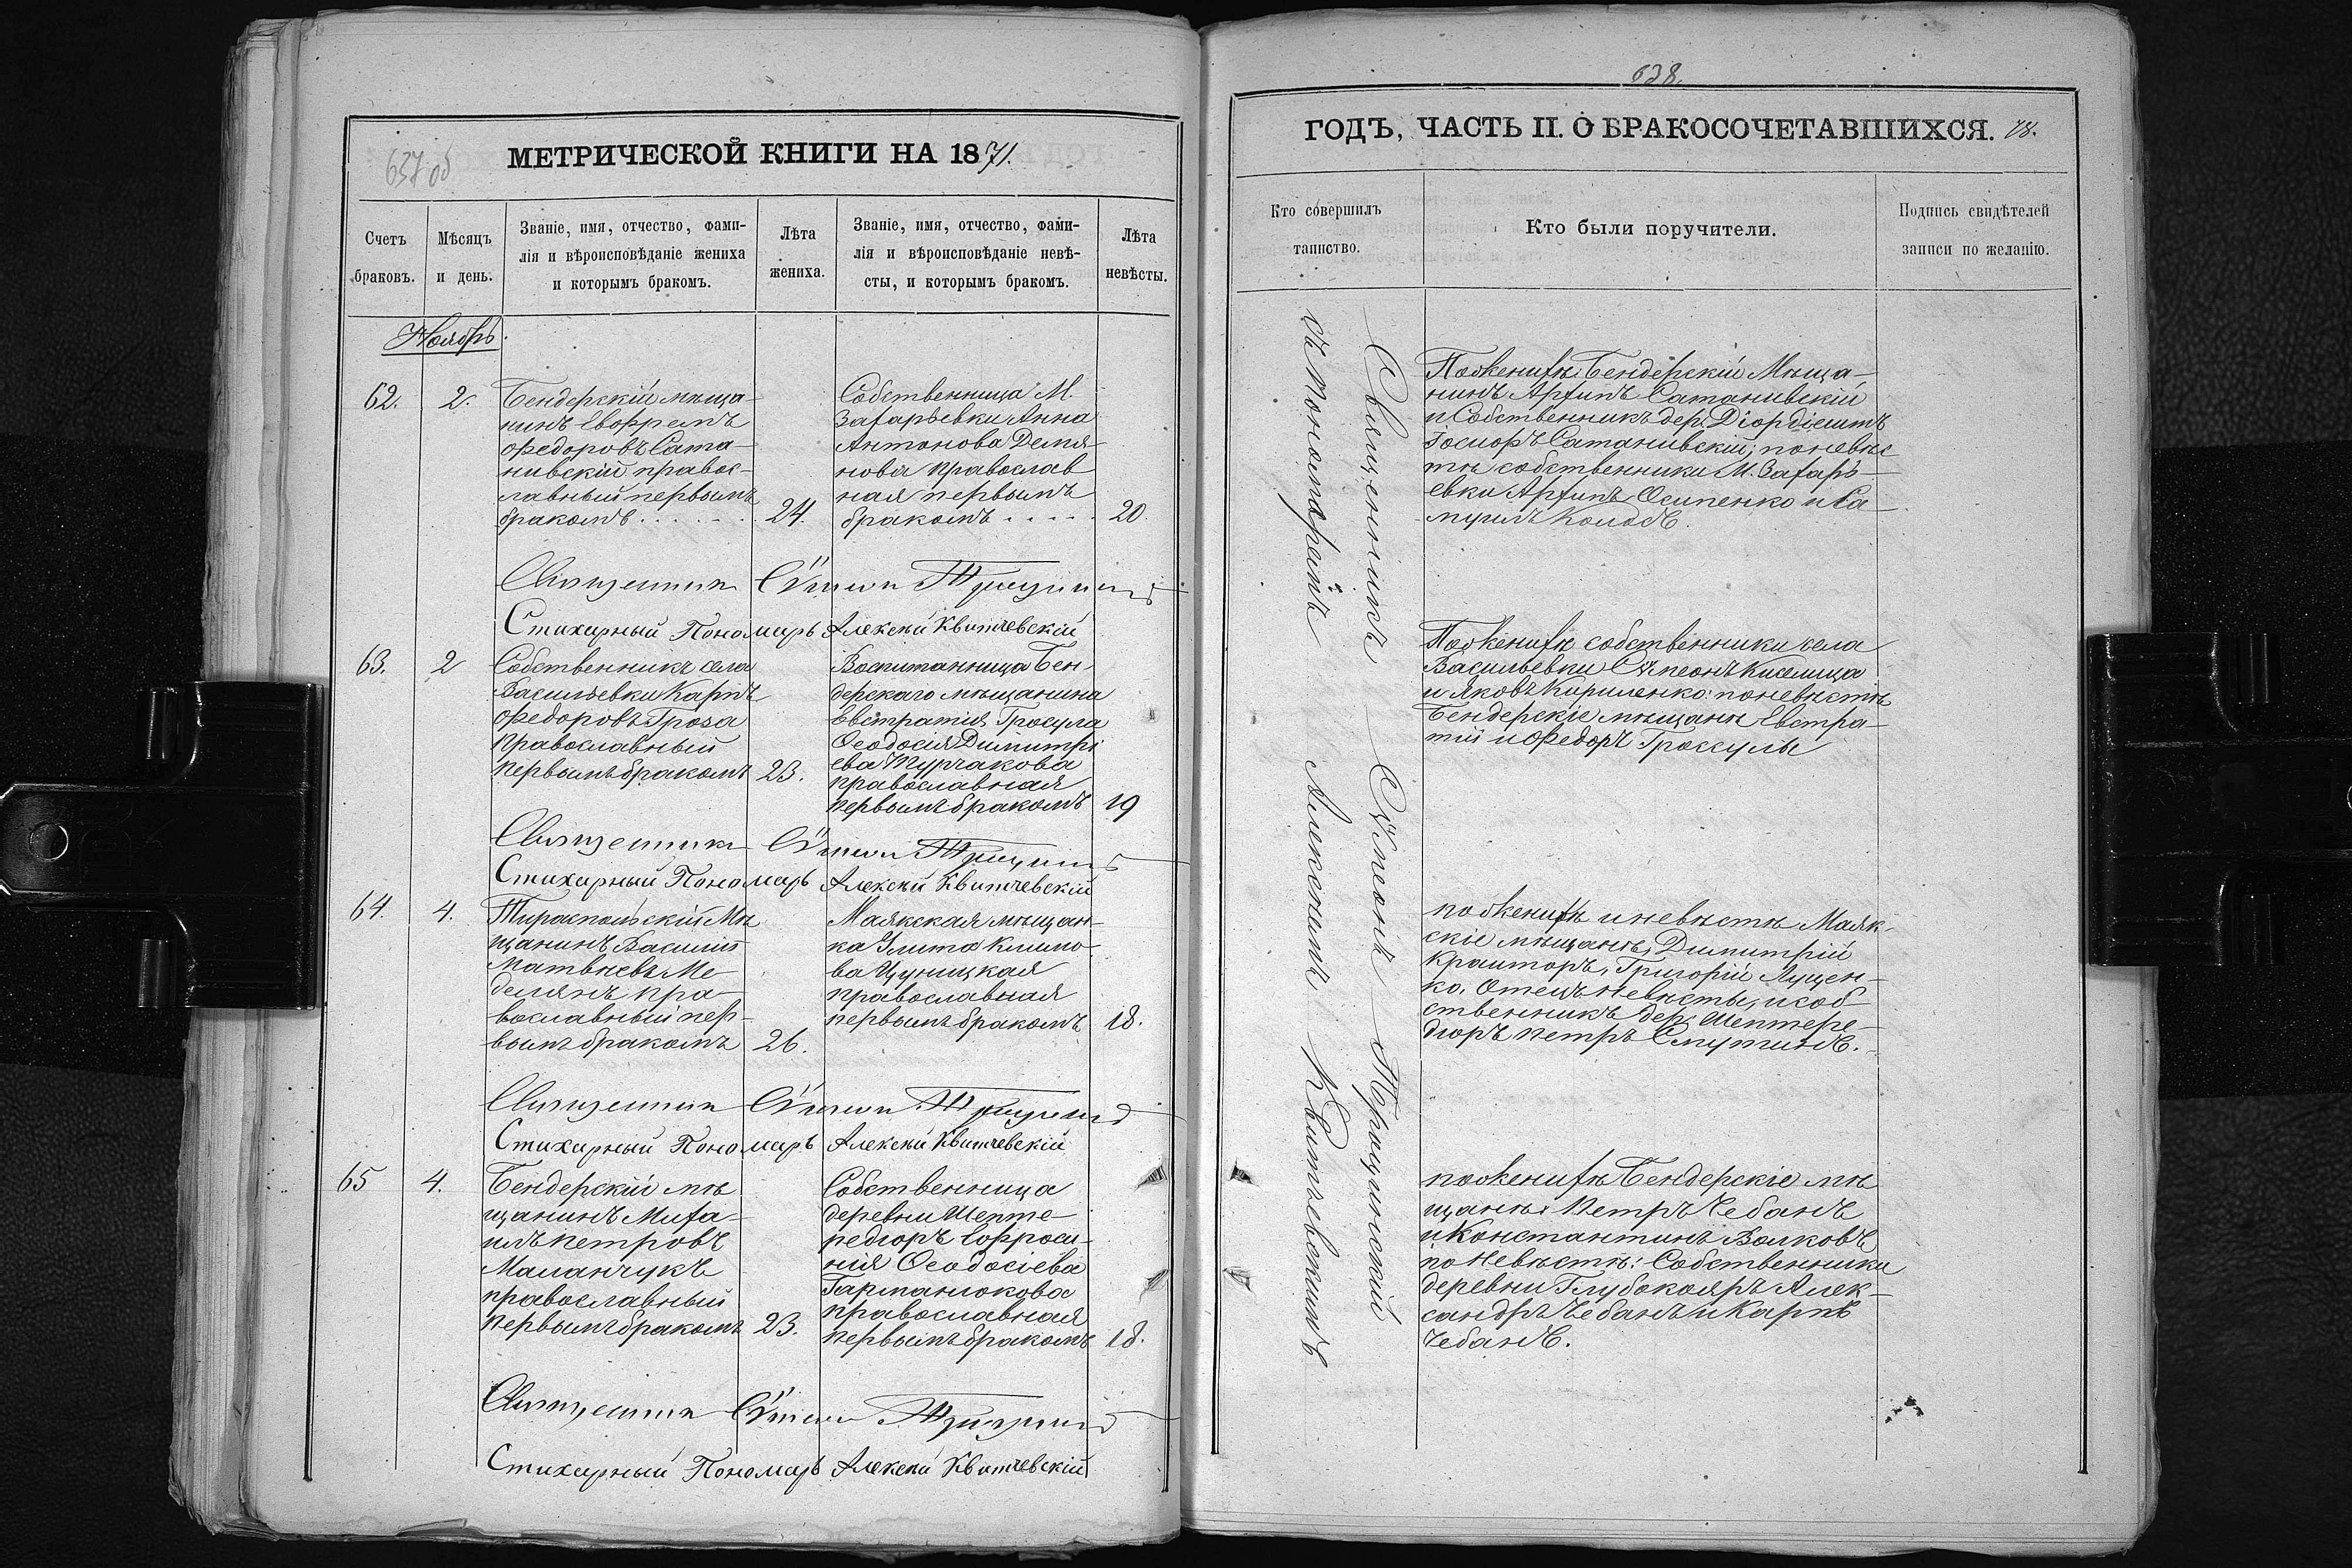 637 об
МЕТРИЧЕСКОЙ КНИГИ НА 1871.
Счетъ браковъ.
Мѣсяцъ и день.
Званіе, имя, отчество, фами-
лія и вѣроисповѣданіе жениха
и которымъ бракомъ.
Лѣта жениха.
Званіе, имя, отчество, фами-
лія и вѣроисповѣданіе невѣ-
сты, и которымъ бракомъ.
Лѣта невѣсты.
Ноябрь.
62.
2.
Бендерскій мѣща-
нинъ Евфремъ
Федоровъ Сата-
нивскій правос-
лавный первымъ
бракомъ . . . . . . 24.
Собственница М.
Захарьевки Анна
Антонова Демя-
нова православ
ная первымъ
бракомъ . . . . 20.
Священникъ Сѵмеон
Стихарный Пономарь Алексѣй Квитчевскій
63.
2
Собственникъ села
Васильевки Карпъ
Федоровъ Гроза
Православный
первымъ бракомъ 23.
Воспитанница Бен-
дерскаго мѣщанина
Евстратія Гросула
Феодосія Димитрі
ева Пурчакова
православная
первымъ бракомъ 19
Священникъ Сѵмеон
Стихарный Пономарь Алексѣй Квитчевскій
64.
4.
Тираспольскій Мѣ
щанинъ Василій
Матвѣевъ Ме-
делянъ пра-
вославный пер-
вымъ бракомъ 26.
Маякская мѣщан-
ка Улита Климо-
ва Цуницкая
православная
первымъ бракомъ 18.
Священникъ Сѵмеон
Стихарный Пономарь Алексѣй Квитчевскій
65
4.
Бендерскій мѣ
щанинъ Миха-
илъ Петровъ
Маланчукъ
православный
первымъ бракомъ 23.
Собственница
деревни Шепте-
редюръ Евфроси-
нія Феодосіева
Гарманюкова
православная
первымъ бракомъ 18.
Священникъ Сѵмеон
Стихарный Пономарь Алексѣй Квитчевскій
638.
ГОДЪ, ЧАСТЬ II. О БРАКОСОЧЕТАВШИХСЯ. 78.
Кто совершилъ
таинство.
Кто были поручители.
Подпись свидѣтелей
записи по желанію.
Священникъ Сѵмеонъ Трицинскій
съ пономаремъ Алексѣемъ Квитчевскимъ
По женихѣ Бендерскій Мѣща-
нинъ Архипъ Сатанивскій
и Собственникъ дер. Діордіештъ
Сатанивскій; по невѣс
тѣ собственники М. Захарь-
евки Архипъ Осипенко и Са-
муилъ
По женихѣ собственники села
Васильевки Сѵмеонъ Киселица
и Яковъ Кириленко: по невѣстѣ
Бендерскіе мѣщане Евстра-
тій и Федоръ Гроссулы
по женихѣ и невѣстѣ Маяк-
скіе мѣщане, Димитрій
Крайторъ, Григорій Лущен-
ко, Отецъ Невѣсты, и соб
ственникъ дер. Шептере-
дюръ Петръ Смутинъ.
по женихѣ Бендерскіе мѣ
щане: Петръ Чебанъ
и Константинъ Волковъ
по Невѣстѣ: Собственники
деревни Глубокояръ Алек-
сандръ Чебанъ и Карпъ
Чебанъ.